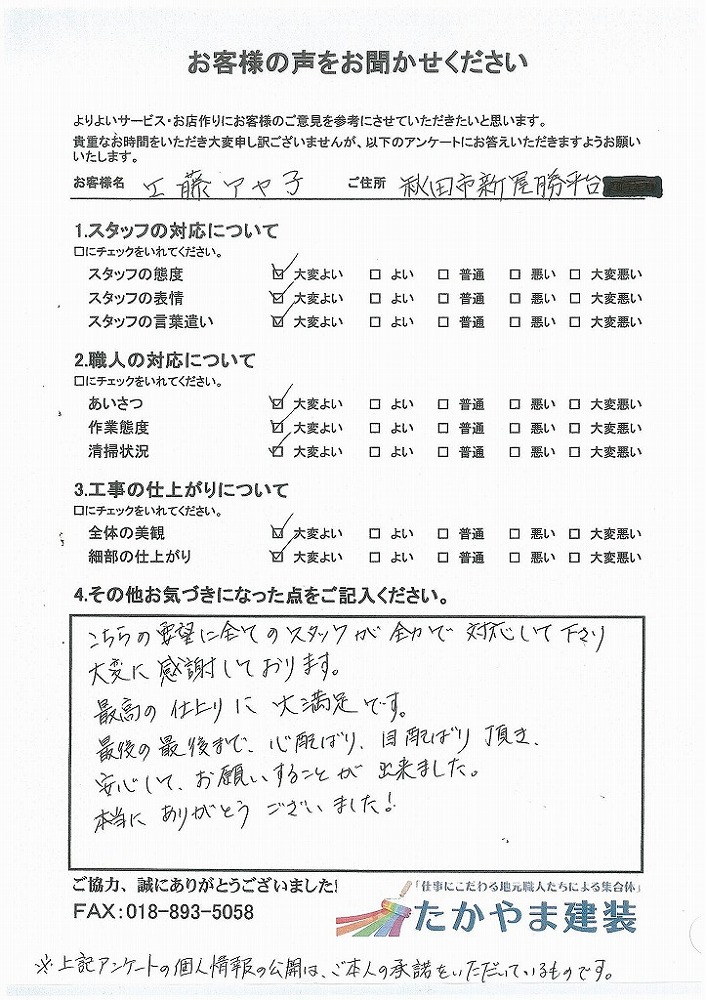 お客様の声をお聞かせください
よりよいサービス・お店作りにお客様のご意見を参考にさせていただきたいと思います。
貴重なお時間をいただき大変申し訳ございませんが、以下のアンケートにお答えいただきますようお願い
いたします。
お客様名 工藤アヤ子 ご住所 秋田市新屋勝平台
1.スタッフの対応について
□にチェックをいれてください。
スタッフの態度 ☑ 大変よい □ よい □ 普通 □ 悪い □ 大変悪い
スタッフの表情 ☑ 大変よい □ よい □ 普通 □ 悪い □ 大変悪い
スタッフの言葉遣い ☑ 大変よい □ よい □ 普通 □ 悪い □ 大変悪い
2.職人の対応について
□にチェックをいれてください。
あいさつ ☑ 大変よい □ よい □ 普通 □ 悪い □ 大変悪い
作業態度 ☑ 大変よい □ よい □ 普通 □ 悪い □ 大変悪い
清掃状況 ☑ 大変よい □ よい □ 普通 □ 悪い □ 大変悪い
3.工事の仕上がりについて
□にチェックをいれてください。
全体の美観 ☑ 大変よい □ よい □ 普通 □ 悪い □ 大変悪い
細部の仕上がり ☑ 大変よい □ よい □ 普通 □ 悪い □ 大変悪い
4.その他お気づきになった点をご記入ください。
こちらの要望に全てのスタッフが全力で対応して下さり
大変に感謝しております。
最高の仕上りに大満足です。
最後の最後まで、心配ばり、目配ばり頂き、
安心して、お願いすることが出来ました。
本当にありがとうございました!
ご協力、誠にありがとうございました!
FAX:018-893-5058
「仕事にこだわる地元職人たちによる集合体」
たかやま建装
※上記アンケートの個人情報の公開は、ご本人の承諾をいただいているものです。